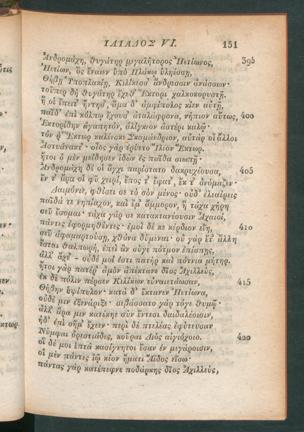 ΙΛΙΑΔΟΣ VI. 151
Ἀνδρομάχη, θυγάτηρ μεγαλήτορος Ἠετίωνος, 395
Ἠετίων, ὃς ἔναιεν ὑπὸ Πλάκῳ ὑληέσσῃ,
Θήβῃ Ὑποπλακίῃ, Κιλίκεσσ' ἄνδρεσσιν ἀνάσσων·
τοῦπερ δὴ θυγάτηρ ἔχεθ' Ἕκτορι χαλκοκορυστῇ.
ἥ οἱ ἔπειτ' ἤντησ', ἅμα δ' ἀμφίπολος κίεν αὐτῇ,
παῖδ' ἐπὶ κόλπῳ ἔχουσ' ἀταλάφρονα, νήπιον αὔτως, 400
Ἑκτορίδην ἀγαπητὸν, ἀλίγκιον ἀστέρι καλῷ·
τόν ῥ' Ἕκτωρ καλέεσκε Σκαμάνδριον, αὐτὰρ οἱ ἄλλοι
Ἀστυάνακτ'· οἶος γὰρ ἐρύετο Ἴλιον Ἕκτωρ.
ἤτοι ὁ μὲν μείδησεν ἰδὼν ἐς παῖδα σιωπῇ·
Ἀνδρομάχη δέ οἱ ἄγχι παρίστατο δακρυχέουσα, 405
ἔν τ' ἄρα οἱ φῦ χειρὶ, ἔπος τ' ἔφατ', ἔκ τ' ὀνόμαζεν·
Δαιμόνιε, φθίσει σε τὸ σὸν μένος· οὐδ' ἐλεαίρεις
παῖδά τε νηπίαχον, καὶ ἔμ' ἄμμορον, ἣ τάχα χήρη
σεῦ ἔσομαι· τάχα γάρ σε κατακτανέουσιν Ἀχαιοὶ,
πάντες ἐφορμηθέντες· ἐμοὶ δέ κε κέρδιον εἴη, 410
σεῦ ἀφαμαρτούσῃ, χθόνα δύμεναι· οὐ γὰρ ἔτ' ἄλλη
ἔσται θαλπωρὴ, ἐπεὶ ἂν σύγε πότμον ἐπίσπῃς,
ἀλλ' ἄχε'· οὐδέ μοί ἐστι πατὴρ καὶ πότνια μήτηρ.
ἤτοι γὰρ πατέρ' ἀμὸν ἀπέκτανε δῖος Ἀχιλλεὺς,
ἐκ δὲ πόλιν πέρσεν Κιλίκων εὐναιετάωσαν, 415
Θήβην ὑψίπυλον· κατὰ δ' ἔκτανεν Ἠετίωνα,
οὐδέ μιν ἐξενάριξε· σεβάσσατο γὰρ τόγε θυμῷ·
ἀλλ' ἄρα μιν κατέκηε σὺν ἔντεσι δαιδαλέοισιν,
ἠδ' ἐπὶ σῆμ' ἔχεεν· περὶ δὲ πτελέας ἐφύτευσαν
Νύμφαι ὀρεστιάδες, κοῦραι Διὸς αἰγιόχοιο. 420
οἳ δέ μοι ἑπτὰ κασίγνητοι ἔσαν ἐν μεγάροισιν,
οἱ μὲν πάντες ἰῷ κίον ἤματι Ἄϊδος εἴσω·
πάντας γὰρ κατέπεφνε ποδάρκης δῖος Ἀχιλλεὺς,